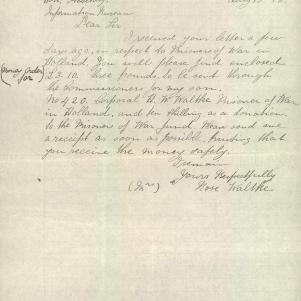 Hon. Secretary
Information Bureau
Dear Sir
I received your letter a few
days ago, in respect to Prisoners of War in
Holland. You will please find enclosed
(money order for)
£3.10. three pounds, to be sent through
the Commissioners for my son.
No 420. Corporal H. W. Waltke Prisoner of War
in Holland, and ten shillings as a donation
to the Prisoner of War fund. Please send me
a receipt as soon as possible, trusting that
you receive the money safely.
I remain
Yours Respectfully
(Mrs) Rose Waltke